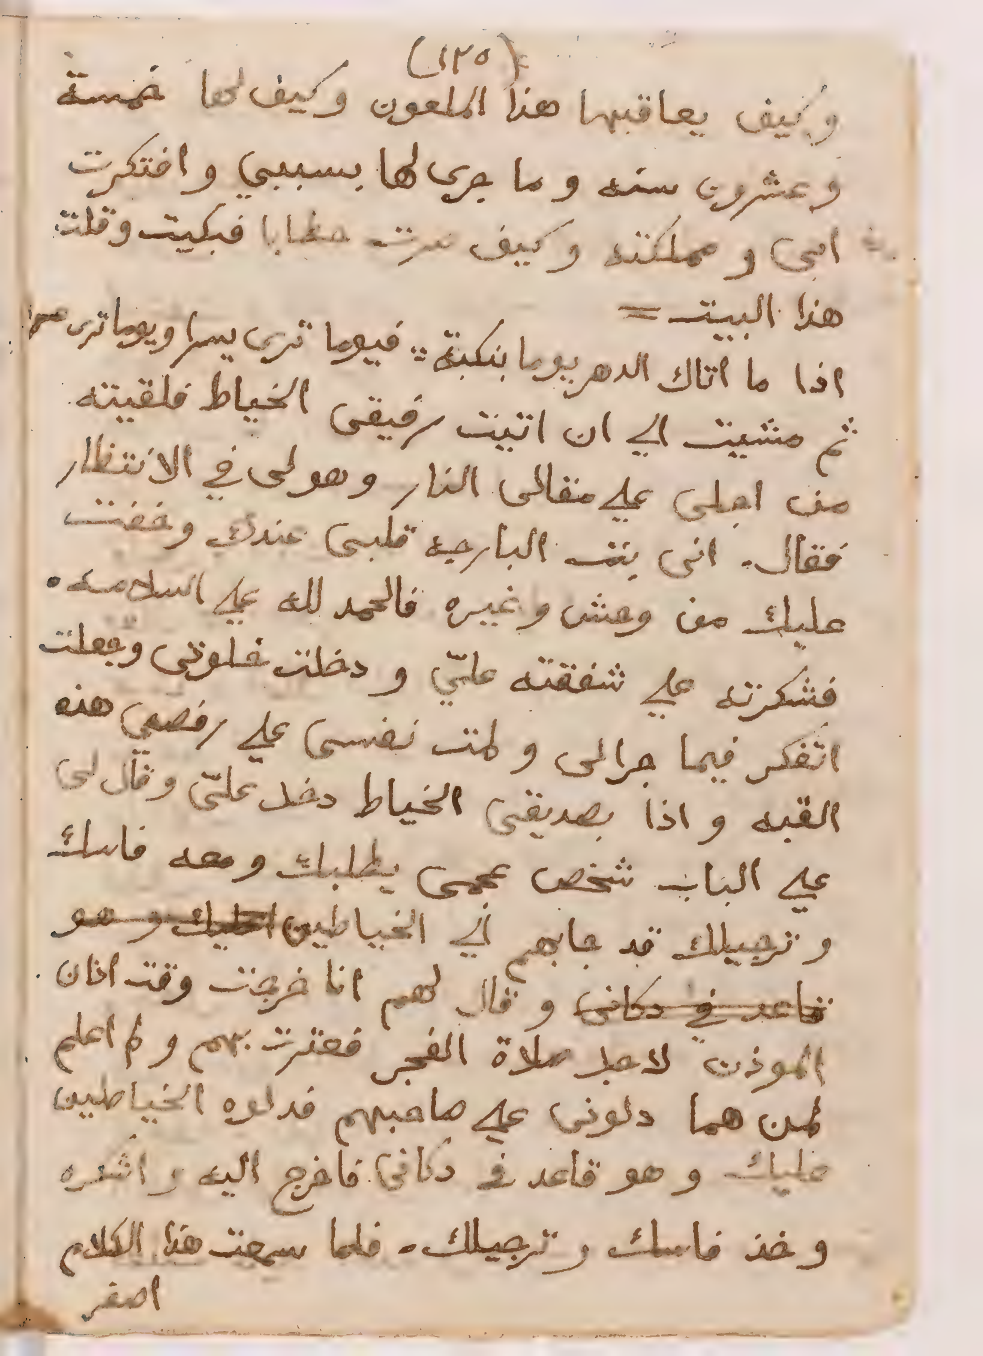 (١٢٥)
وكيف يعاقبها هذا الملعون وكيف لها خمسة
وعشرون سنه و ما جرى لها بسببي و افتكرت
ابى و مملكته وكيف صرت حطابا فبكيت وقلت
هذا البيت =
اذا ما اتاك الدهر يوما بنكبة :: فيوما ترى يسرا ويوما ترى
ثم مشيت الى ان اتيت رفيقى الخياط فلقيته
من اجلى على مقالى النار وهو لى في الانتظار
فقال . انى بت البارحه قلبى عندك وخفت
عليك من وحش وغيره فالحمد لله على السلامه .
فشكرته على شفقته عليّ و دخلت خلوتى وجعلت
اتفكر فيما جرالى و لمت نفسى على رفصي هذه
القبه و اذا بصديقى الخياط دخل عليّ وقال لى
على الباب شخص عجمى يطلبك ومعه فاسك
و ترجيلك قد جابهم الى الخياطين اليك وهو
قاعد في دكانى و قال لهم انا خرجت وقت اذان
الموذن لاجل صلاة الفجر فعثرت بهم و لم اعلم
لمن هما دلونى على صاحبهم فدلوه الخياطين
عليك و هو قاعد في دكانى فاخرج اليه و اشكره
و خذ فاسك و ترجيلك . فلما سمعت هذا الكلام
اصفر